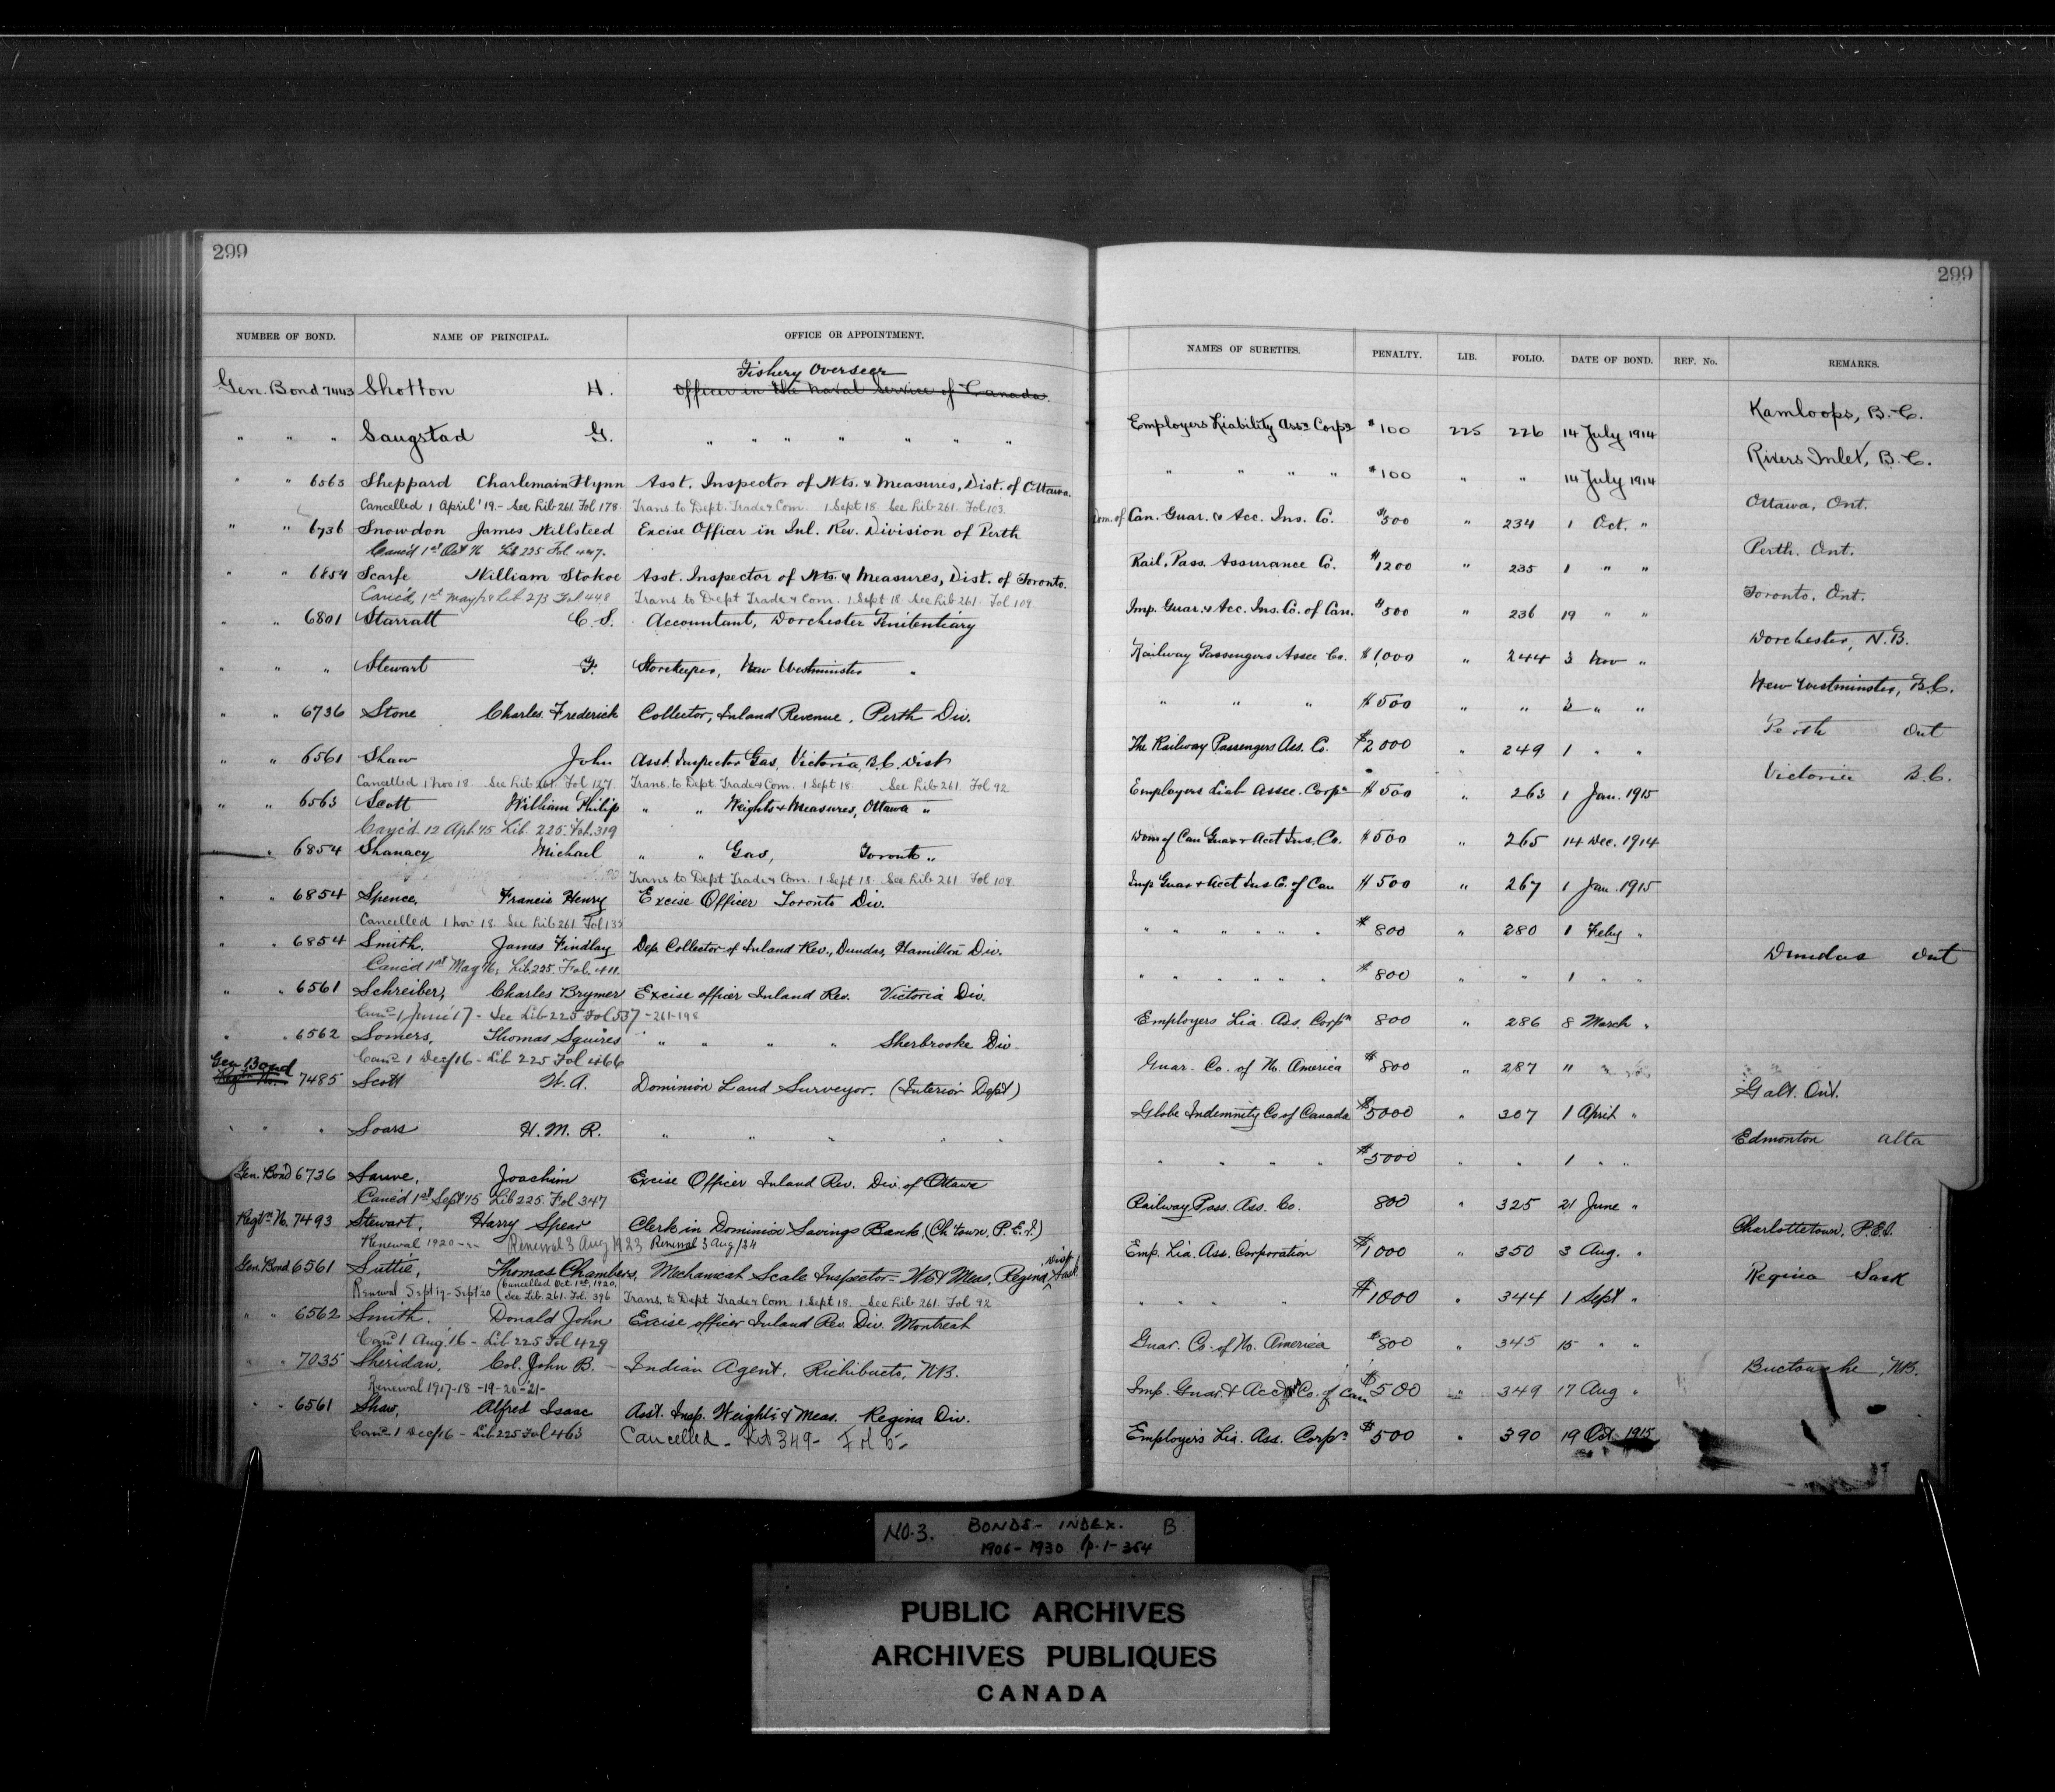 299
299
NUMBER OF BOND. NAME OF PRINCIPAL. OFFICE OR APPOINTMENT. NAMES OF SURETIES. PENALTY. LIB. FOLIO. DATE OF BOND. REF. No. REMARKS.
Fishery Overseer
Gen. Bond 7443 Shotton H. Officer in the Naval Service of Canada. Employers Liability Assce Corpn $100 225 226 14 July 1914 Kamloops, B.C.
" " " Saugstad G. " " " " " " " " " " " $100 " " 14 July 1914 Rivers Inlet, B.C.
" " 6563 Sheppard Charlemain Flynn Asst. Inspector of Wts. & Measures, Dist. of Ottawa. Dom. of Can. Guar. & Acc. Ins. Co. $500 " 234 1 Oct. " Ottawa, Ont.
Cancelled 1 April '19 - See Lib 261 Fol 178. Trans. to Dept. Trade & Com. 1 Sept 18 See Lib 261. Fol 103.
" " 6736 Snowdon James Willsteed Excise Officer in Inl. Rev. Division of Perth Rail. Pass. Assurance Co. $1200 " 235 1 " " Perth. Ont.
Canc'd 1st Oct 16 Lib 225 Fol 447.
" " 6854 Scarfe William Stokoe Asst. Inspector of Wts. & Measures, Dist. of Toronto. Imp. Guar. & Acc. Ins. Co. of Can. $500 " 236 19 " " Toronto. Ont.
Canc'd, 1st May Lib 273 Fol 448 Trans to Dept Trade & Com. 1 Sept 18 See Lib 261. Fol 109
" " 6801 Starratt C. S. Accountant, Dorchester Penitentiary Railway Passengers Assce Co. $1,000 " 244 3 Nov " Dorchester, N.B.
" " " Stewart G. Storekeeper, New Westminster " " " " $500 " " 3 " " New Westminster, B.C.
" " 6736 Stone Charles Frederick Collector, Inland Revenue, Perth Div. The Railway Passengers Ass. Co. $2000 " 249 1 " " Perth Ont
" " 6561 Shaw John Asst. Inspector Gas, Victoria, B.C. Dist Employers Liab Assce. Corpn $500 " 263 1 Jan. 1915 Victoria B.C.
Cancelled 1 Nov 18 See Lib 261. Fol 127 Trans. to Dept Trade & Com. 1 Sept 18. See Lib 261. Fol 92
" " 6563 Scott William Philip " " Weights & Measures, Ottawa " Dom of Can Guar & Acct Ins. Co. $500 " 265 14 Dec. 1914
Canc'd 12 Apl. '15 Lib. 225. Fol. 319
" 6854 Shanacy Michael " " Gas, Toronto " Imp Guar & Acct Ins Co. of Can $500 " 267 1 Jan. 1915
Trans to Dept Trade & Com. 1 Sept 18. See Lib 261 Fol 109.
" " 6854 Spence, Francis Henry Excise Officer Toronto Div. " " " " " " $800 " 280 1 Feby "
Cancelled 1 Nov 18. See Lib 261 Fol 135
" " 6854 Smith. James Findlay Dep. Collector of Inland Rev., Dundas, Hamilton Div. " " " " " " $800 " " 1 " " Dundas Ont
Canc'd 1st May 16, Lib. 225. Fol. 411.
" " 6561 Schreiber, Charles Brymer Excise officer Inland Rev. Victoria Div. Employers Lia. Ass. Corpn 800 " 286 8 March "
Cancd 1 June '17 - See Lib 225 Fol 537 - 261-198
" " 6562 Somers, Thomas Squires " " " " " Sherbrooke Div. Guar. Co. of N. America $800 " 287 "
Cancd 1 Dec/16 - Lib. 225 Fol 466
Gen Bond
Regtn No. 7485 Scott W. A. Dominion Land Surveyor. (Interior Dept) Globe Indemnity Co of Canada $5000 " 307 1 April " Galt. Ont.
" " " Soars H. M. R. " " " " " " " " " $5000 " " 1 " " Edmonton Alta
Gen. Bond 6736 Sauve, Joachim Excise Officer Inland Rev. Div. of Ottawa Railway Pass. Ass. Co. 800 " 325 21 June "
Canc'd 1st Sept '15 Lib 225. Fol 347
Regtn N. 7493 Stewart, Harry Spear Clerk in Dominion Savings Bank, (Ch'town, P.E.I.) Emp. Lia. Ass. Corporation $1000 " 350 3 Aug. " Charlottetown, P.E.I.
Renewal 1920 Renewal 3 Aug 1923 Renewal 3 Aug/24
Gen. Bond 6561 Suttie, Thomas Chambers, Mechanical Scale Inspector - Wt & Meas, Regina, Sask. Dist " " " " $1000 " 344 1 Sept " Regina Sask
Renewal Sept 19 - Sept 20 (Cancelled Oct. 1st, 1920, See Lib. 261. Fol. 396 Trans. to Dept Trade & Com. 1 Sept 18. See Lib 261 Fol 92
" " 6562 Smith. Donald John Excise officer Inland Rev. Div. Montreal Guar. Co. of No. America $800 " 345 15 " "
Cancd 1 Aug. 16 - Lib 225 Fol 429
" " 7035 Sheridan, Col. John B. Indian Agent. Richibucto, N.B. Imp. Guar. & Acct Co. of Can $500 " 349 17 Aug " Buctouche, N.B.
Renewal 1917-18-19-20-21-
" " 6561 Shaw, Alfred Isaac Asst. Insp. Weights & Meas. Regina Div. Employers Lia. Ass. Corpn $500 " 390 19 Oct. 1915
Cancd 1 Dec/16 - Lib 225 Fol 463 Cancelled - Lib 349 - Fol 5
NO. 3. BONDS - INDEX. B
1906 - 1930 p. 1-364
PUBLIC ARCHIVES
ARCHIVES PUBLIQUES
CANADA